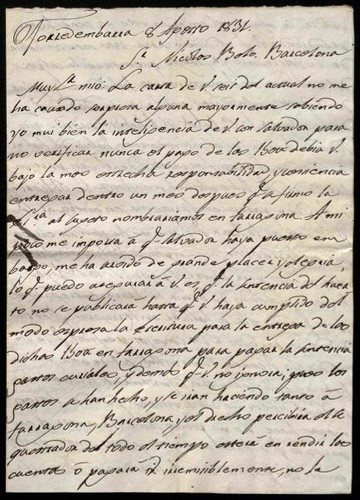 Torredembarra 8 Agosto 1831.
Sr. Nicolas Barcelona
Muy Sr. mio: La carta de V. seis del actual no me
ha causado sorpresa alguna mayormente sabiendo
yo mui bien la inteligencia de V. con Salvador para
no verificar nunca el pago de las V.
bajo la mas estrecha responsabilidad, y conciencia
entregar dentro un mes despues qe.
al sugeto nombrariamos en tarragona. A mi
me importa a qe. Salvador haya puesto em
bargo, me ha servido de grande placer y alegria,
lo qe. puedo asegurar á V. es, qe. la sentencia del
no se publicara hasta qe. V. haya cumplido del
modo espresa la Escritura para la entrega de los
dichos en tarragona para pagar la sentencia
gastos y demas qe. V. no ignora; pues los
gastos se han hecho, y se iran haciendo tanto á
tarragona, Barcelona, y
del todo el tiempo en rendir los
cuentas o pagar irremisiblemente, no le